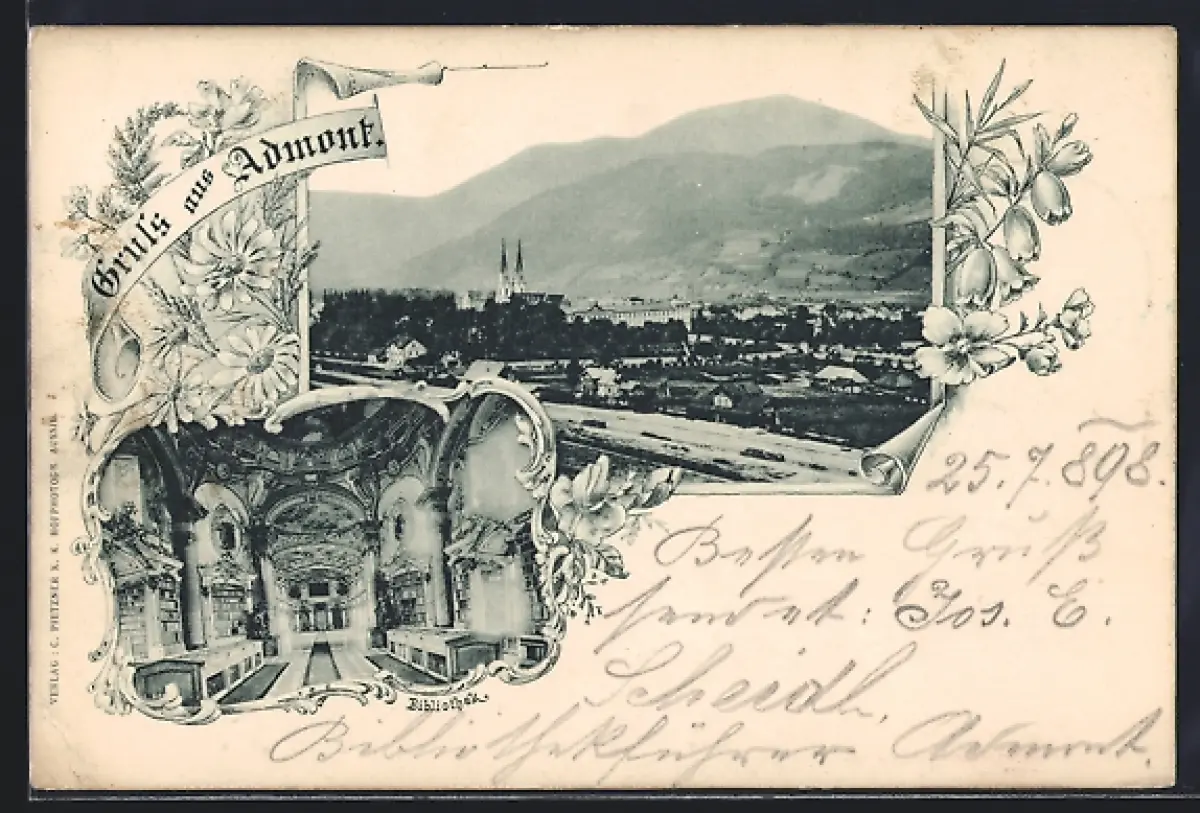 Gruſs aus Admont.
25. 7. 898.
Besten Gruß
sendet: Jos. E.
Scheidl,
Bibliothekführer Admont.
Bibliothek.
VERLAG: C. PIETZNER K. K. HOFPHOTOGR. AUSSIG.